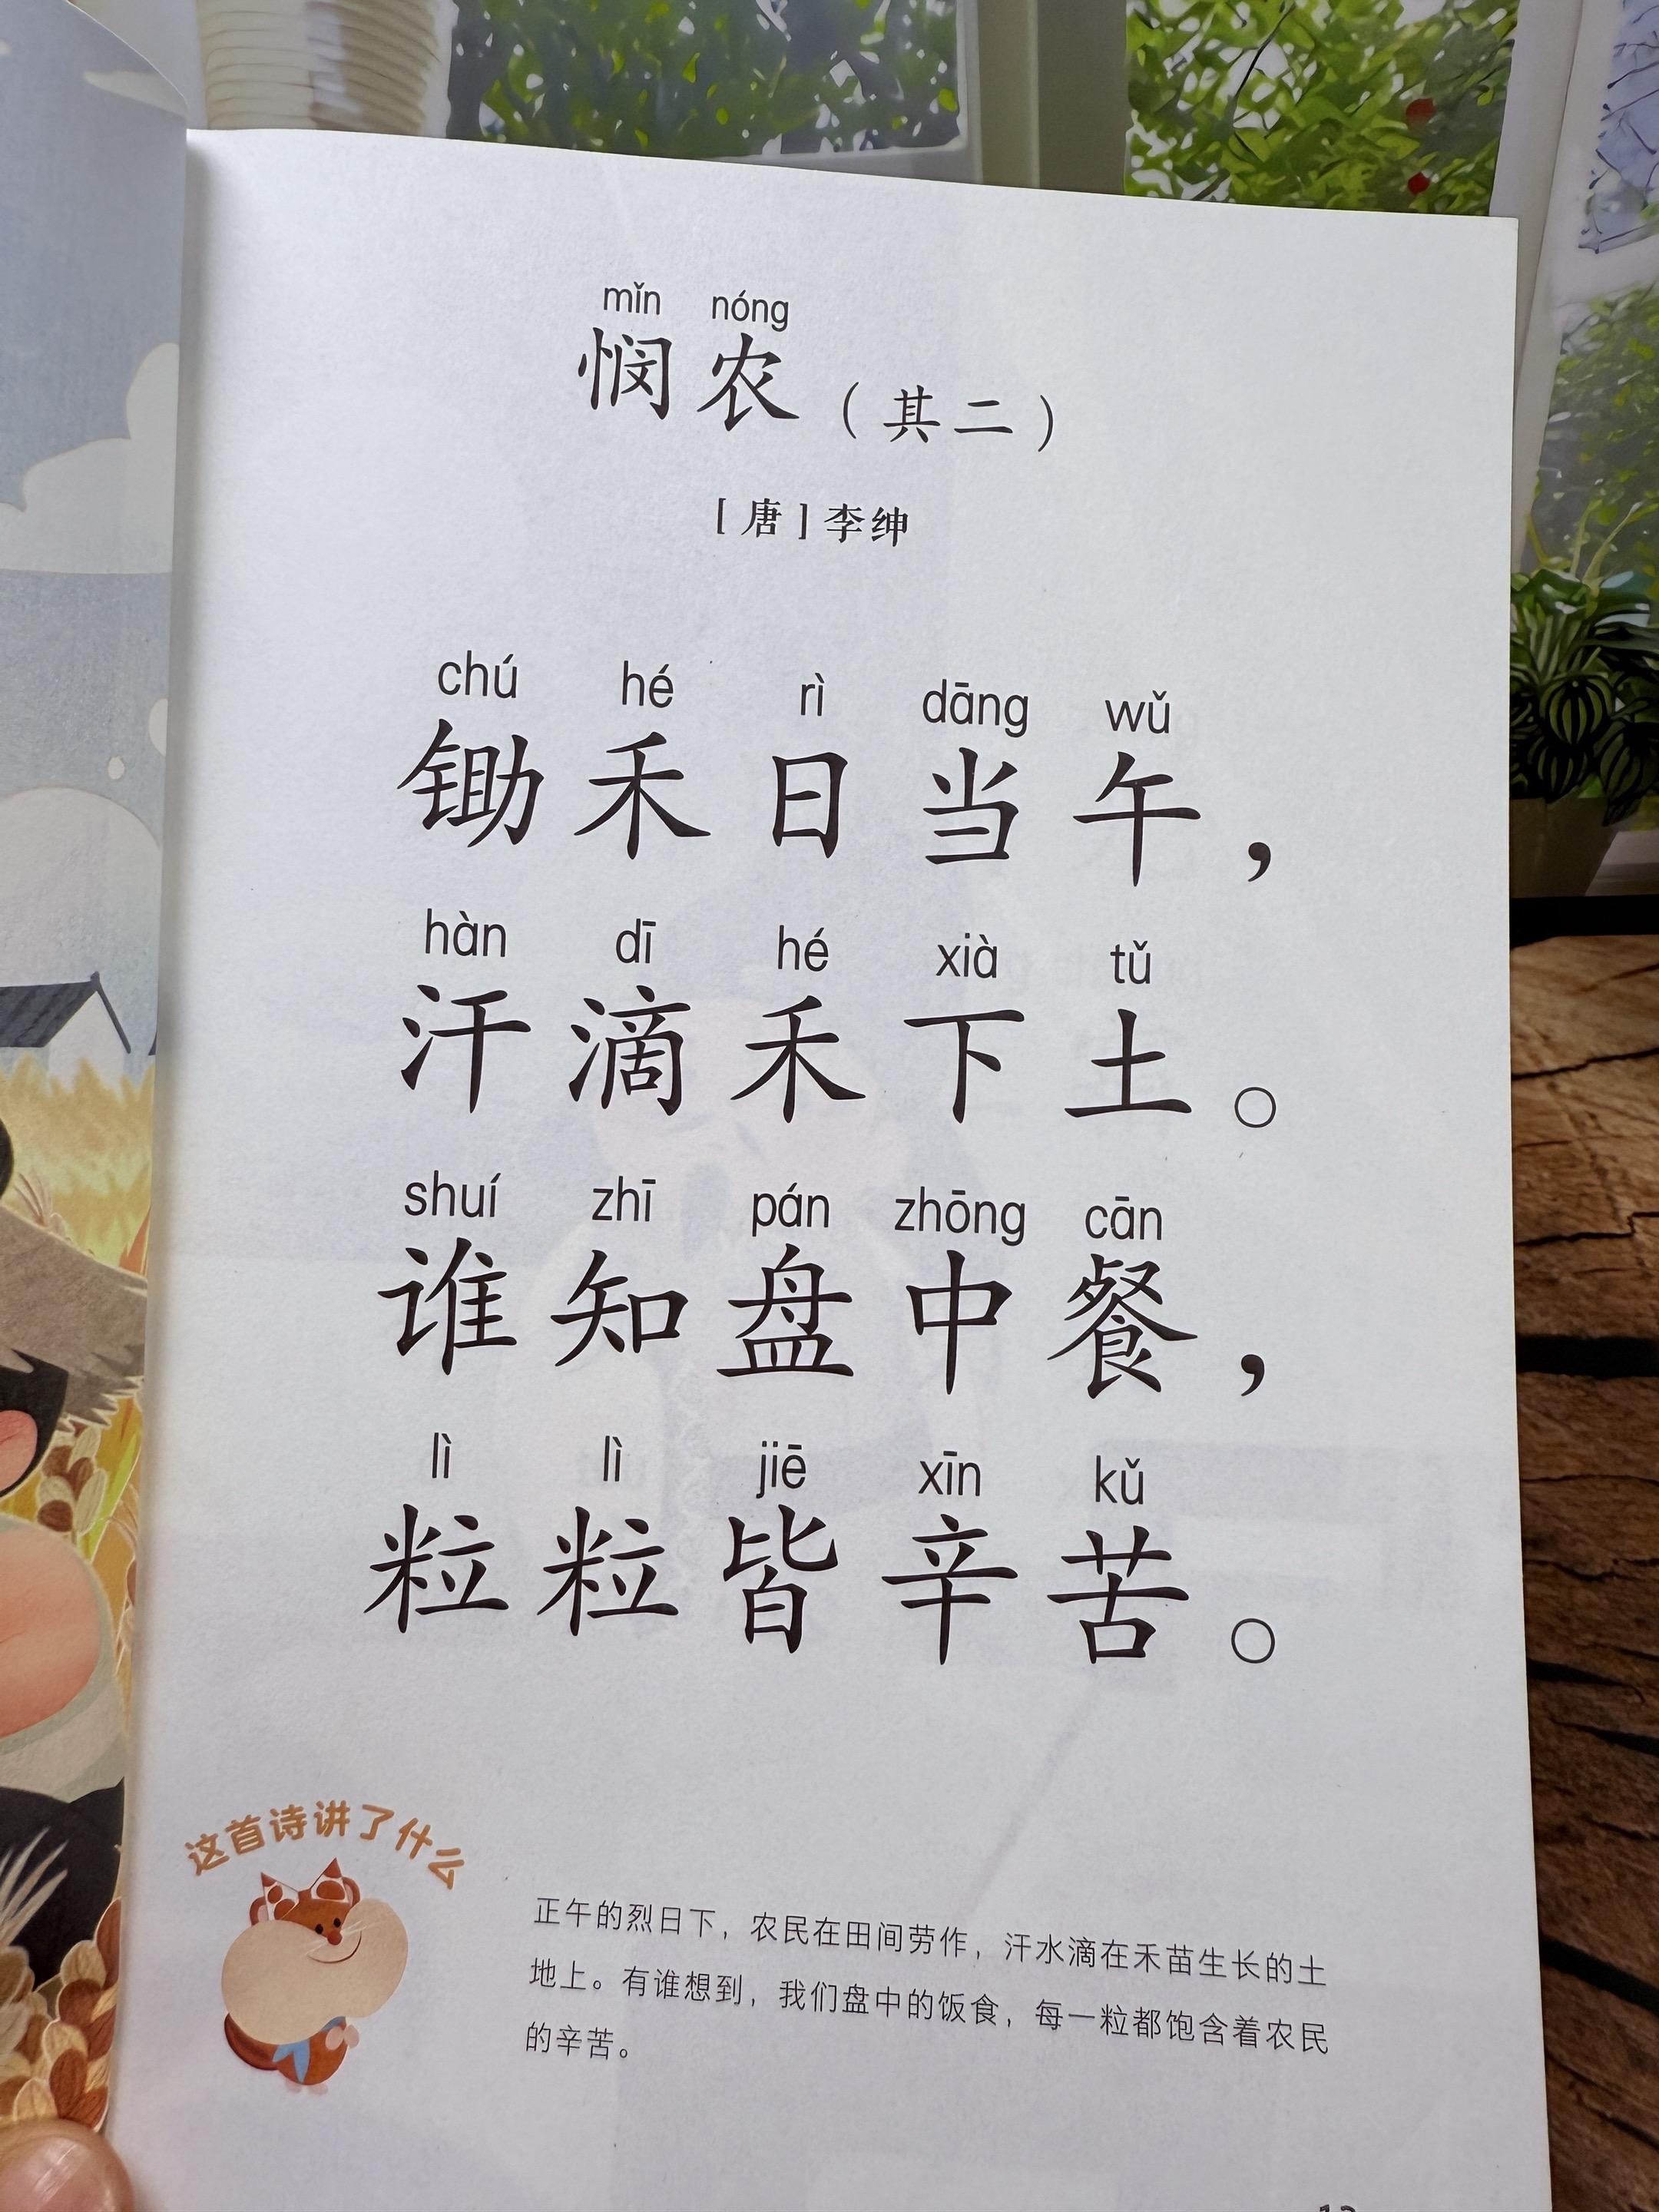 mǐn nóng
悯农（其二）
［唐］李绅
chú hé rì dāng wǔ
锄禾日当午，
hàn dī hé xià tǔ
汗滴禾下土。
shuí zhī pán zhōng cān
谁知盘中餐，
lì lì jiē xīn kǔ
粒粒皆辛苦。
这首诗讲了什么
正午的烈日下，农民在田间劳作，汗水滴在禾苗生长的土
地上。有谁想到，我们盘中的饭食，每一粒都饱含着农民
的辛苦。